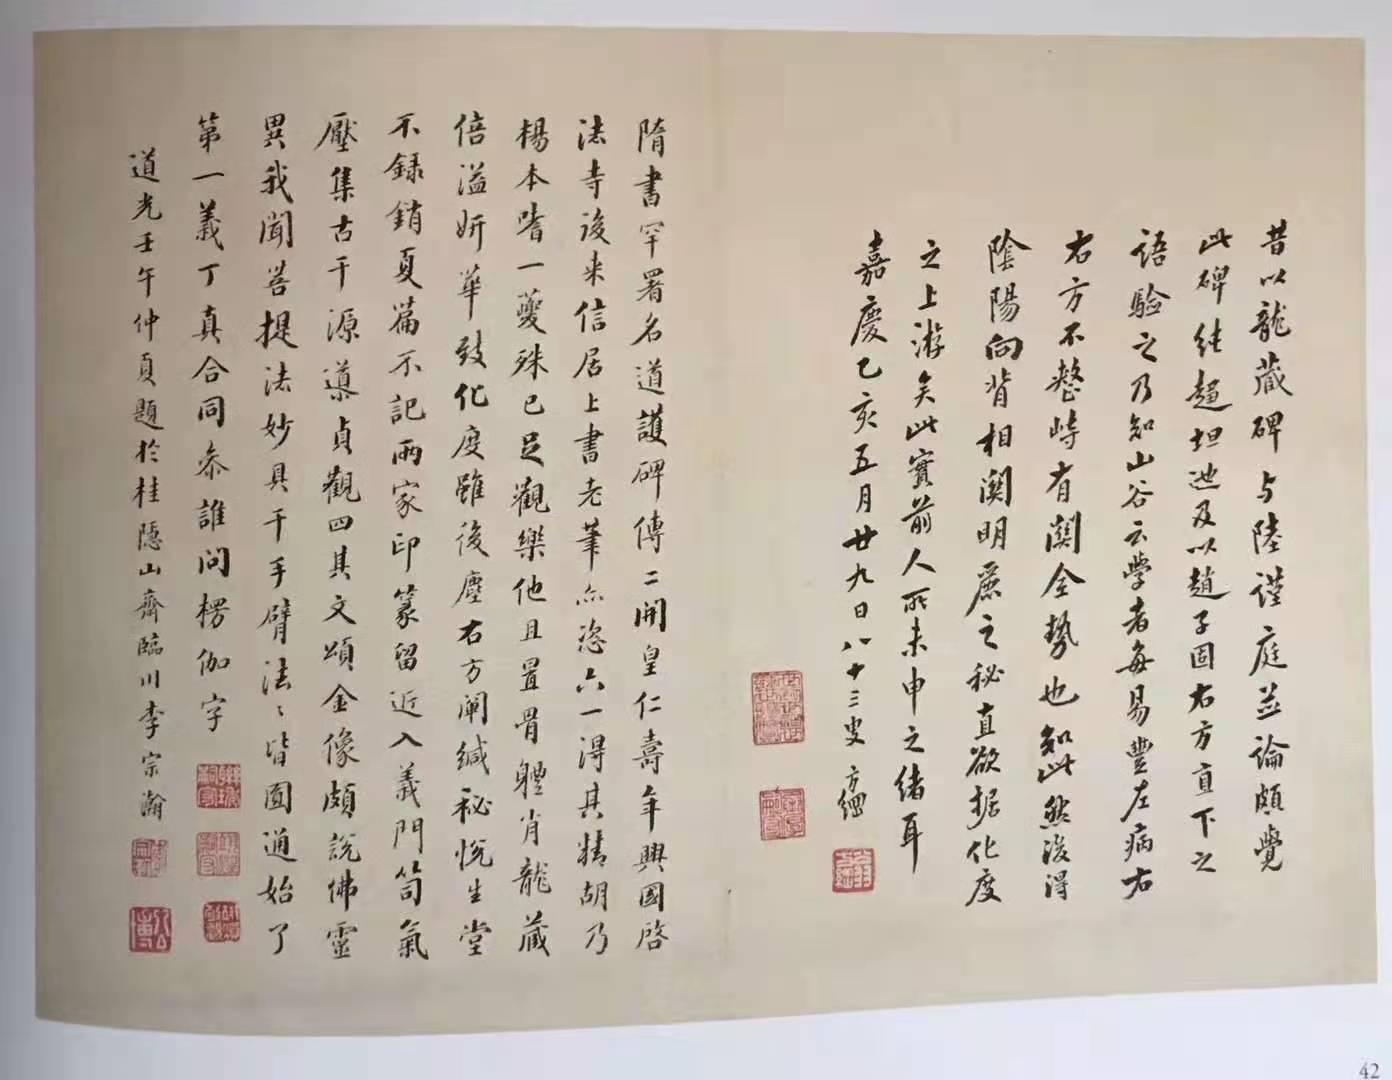 昔以龍藏碑与陸謹庭並論頗覺
此碑純超坦迆及以趙子固右方直下之
語驗之乃知山谷云學者每易豐左病右
右方不整峙有關全勢也知此然後得
陰陽向背相關明廉之秘直欲据化度
之上游矣此實前人所未申之緒耳
嘉慶乙亥五月廿九日八十三叟方綱
隋書罕署名道護碑傳二開皇仁壽年興國啓
法寺後来信居上書老筆亦恣六一得其精胡乃
楊本嗜一夔殊已足觀樂他且置骨體肖龍藏
倍溢妍華致化度雖後塵右方闡緘秘悅生堂
不録銷夏篇不記兩家印篆留近入義門笥氣
壓集古千源導貞觀四其文頌金像頗說佛靈
異我聞菩提法妙具千手臂法〻皆圓通始了
第一義丁真合同叅誰问楞伽字
道光壬午仲夏題於桂隱山齋臨川李宗瀚
42